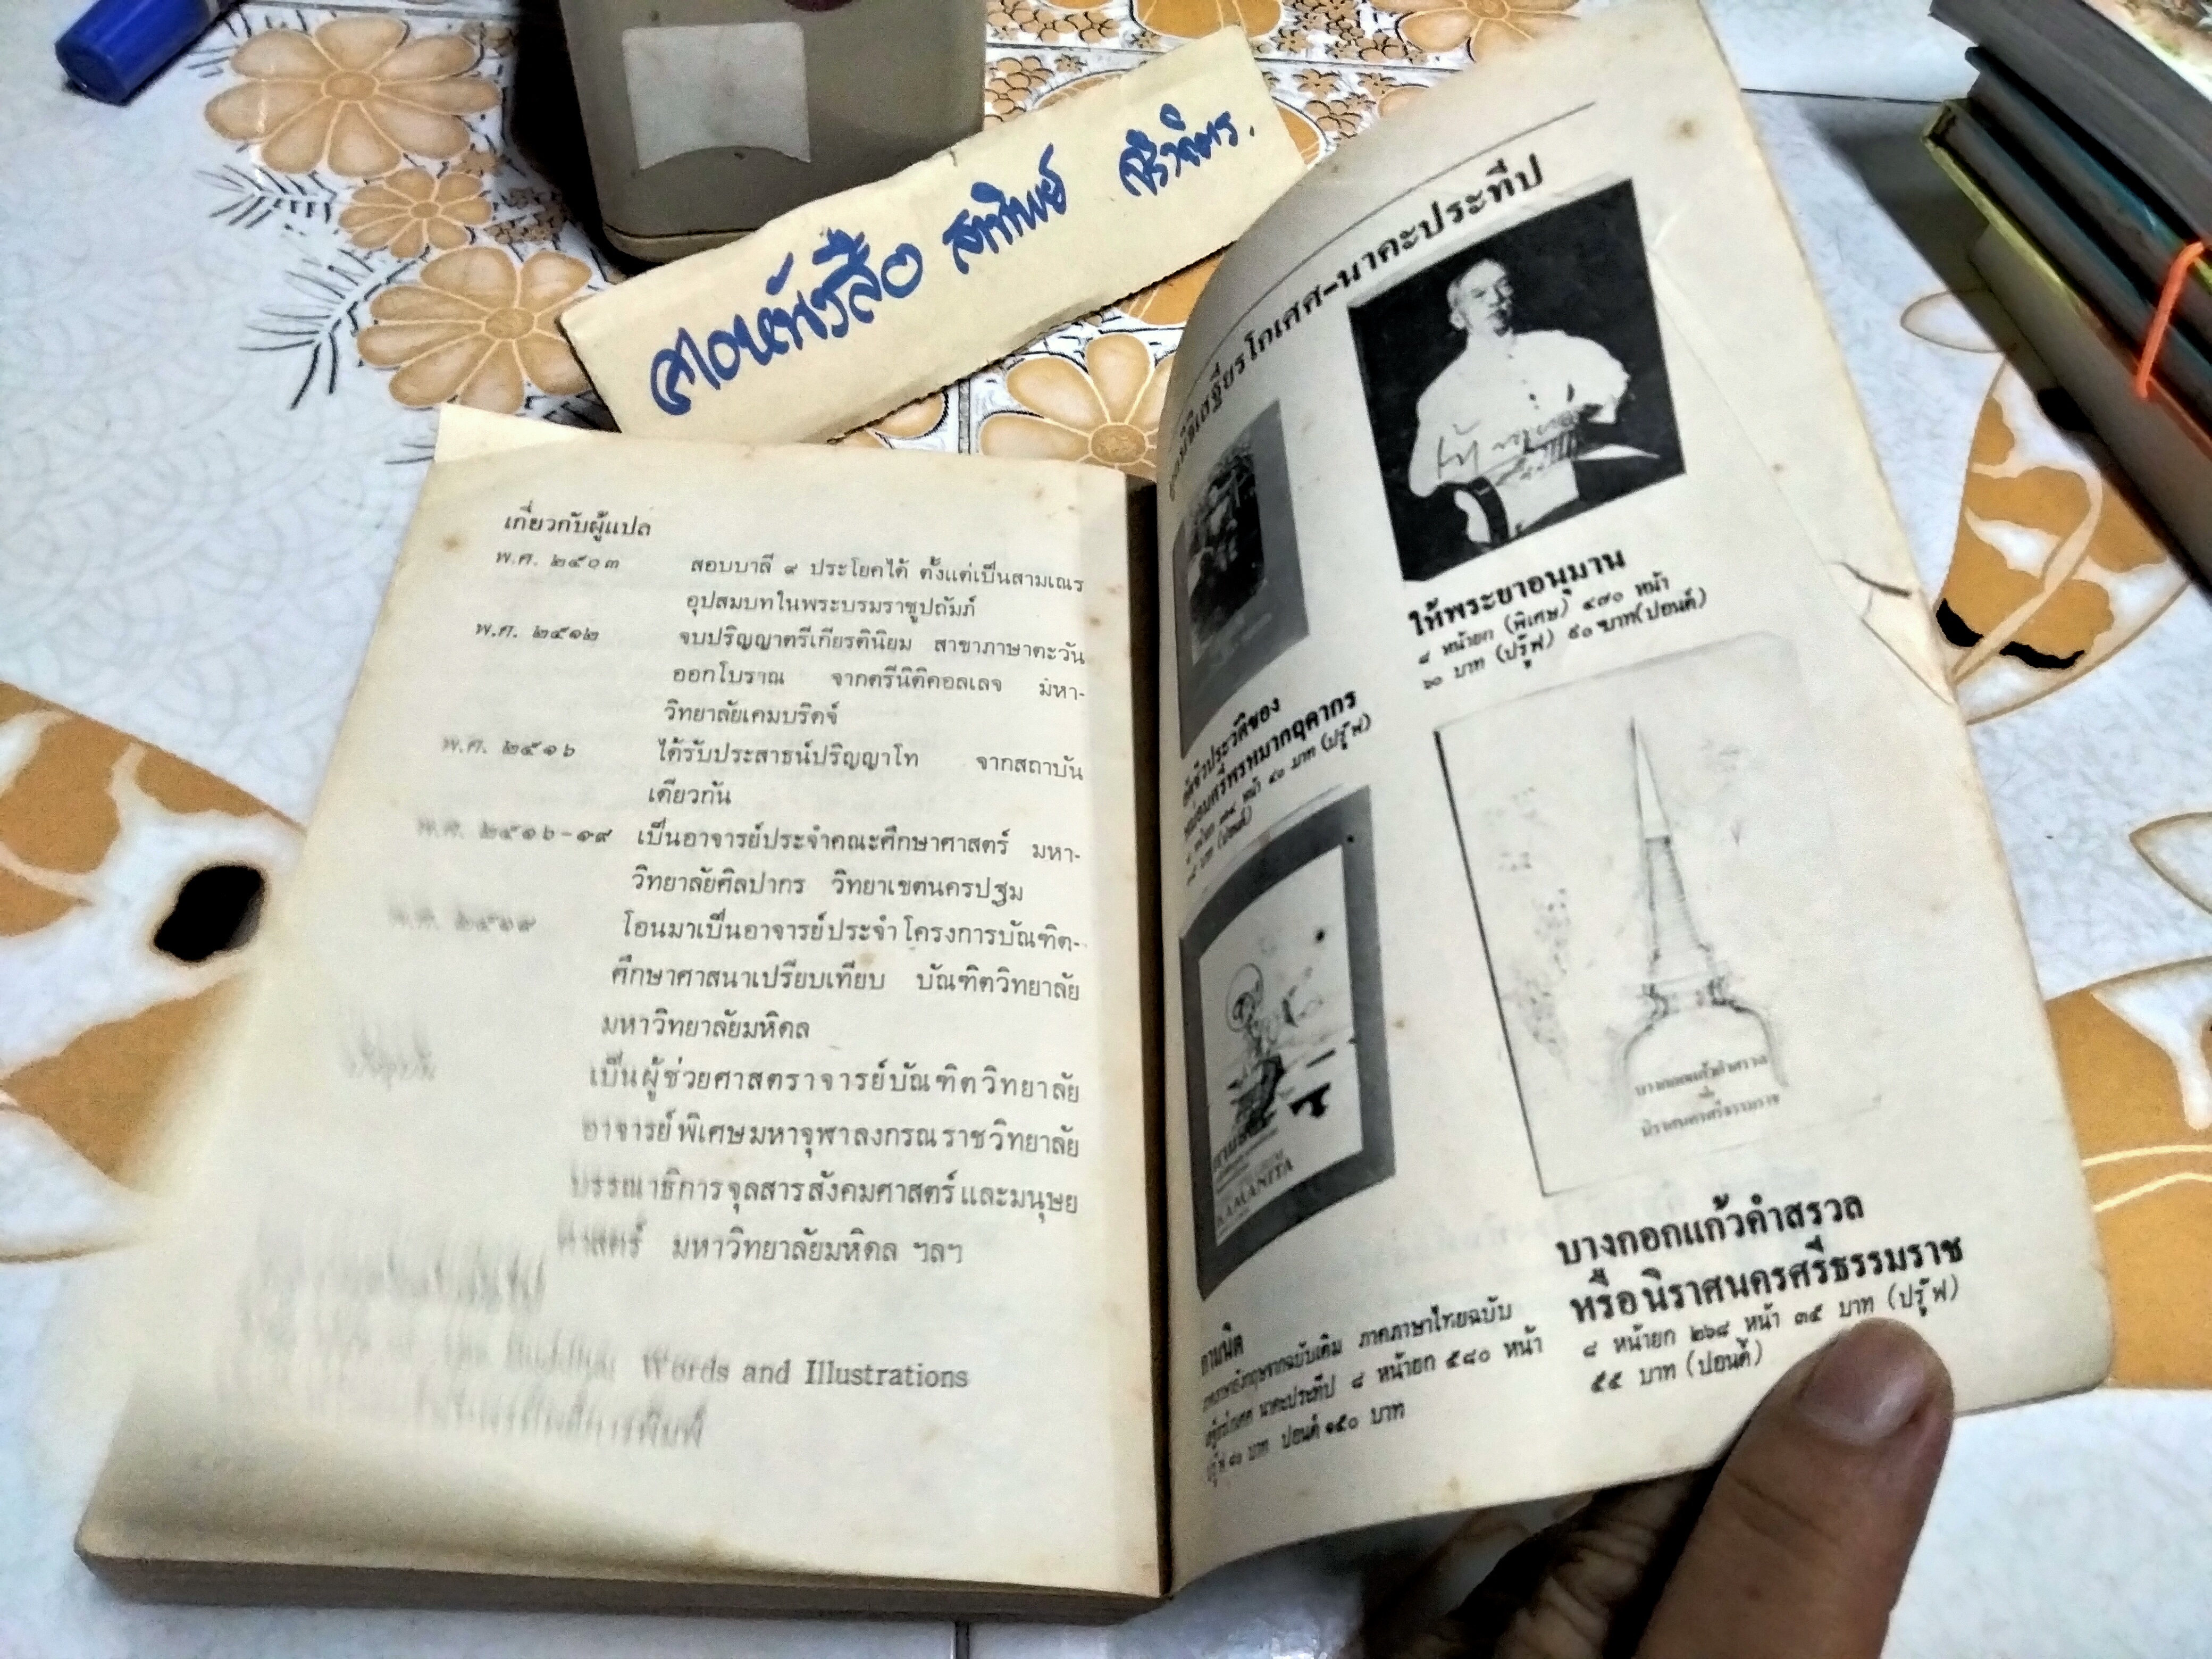 สิวิจิตร.
เกี่ยวกับผู้แปล
พ.ศ. ๒๕๐๓ สอบบาลี ๙ ประโยคได้ ตั้งแต่เป็นสามเณร
อุปสมบทในพระบรมราชูปถัมภ์
พ.ศ. ๒๕๑๒ จบปริญญาตรีเกียรตินิยม สาขาภาษาตะวัน
ออกโบราณ จากตรีนิติคอลเลจ มหา-
วิทยาลัยเคมบริดจ์
พ.ศ. ๒๕๑๖ ได้รับประสาธน์ปริญญาโท จากสถาบัน
เดียวกัน
พ.ศ. ๒๕๑๖-๑๙ เป็นอาจารย์ประจำคณะศึกษาศาสตร์ มหา-
วิทยาลัยศิลปากร วิทยาเขตนครปฐม
พ.ศ. ๒๕๑๙ โอนมาเป็นอาจารย์ประจำโครงการบัณฑิต-
ศึกษาศาสนาเปรียบเทียบ บัณฑิตวิทยาลัย
มหาวิทยาลัยมหิดล
เป็นผู้ช่วยศาสตราจารย์บัณฑิตวิทยาลัย
อาจารย์พิเศษมหาจุฬาลงกรณราชวิทยาลัย
บรรณาธิการจุลสารสังคมศาสตร์และมนุษย
ศาสตร์ มหาวิทยาลัยมหิดล ฯลฯ
Words and Illustrations
มูลนิธิเสฐียรโกเศศ-นาคะประทีป
ให้พระยาอนุมาน
๘ หน้ายก (พิเศษ) ๔๗๐ หน้า
๖๐ บาท (ปรู๊ฟ) ๙๐ บาท(ปอนด์)
อัตชีวประวัติของ
หม่อมศรีพรหมากฤดากร
KAMANITA
บางกอกแก้วกำสรวล
นิราศนครศรีธรรมราช
บางกอกแก้วกำสรวล
หรือนิราศนครศรีธรรมราช
๘ หน้ายก ๒๖๘ หน้า ๓๕ บาท (ปรู๊ฟ)
๕๕ บาท (ปอนด์)
กามนิต
ภาคภาษาอังกฤษจากฉบับเดิม ภาคภาษาไทยฉบับ
เสฐียรโกเศศ นาคะประทีป ๘ หน้ายก ๕๘๐ หน้า
ปรู๊ฟ ๘๐ บาท ปอนด์ ๑๕๐ บาท